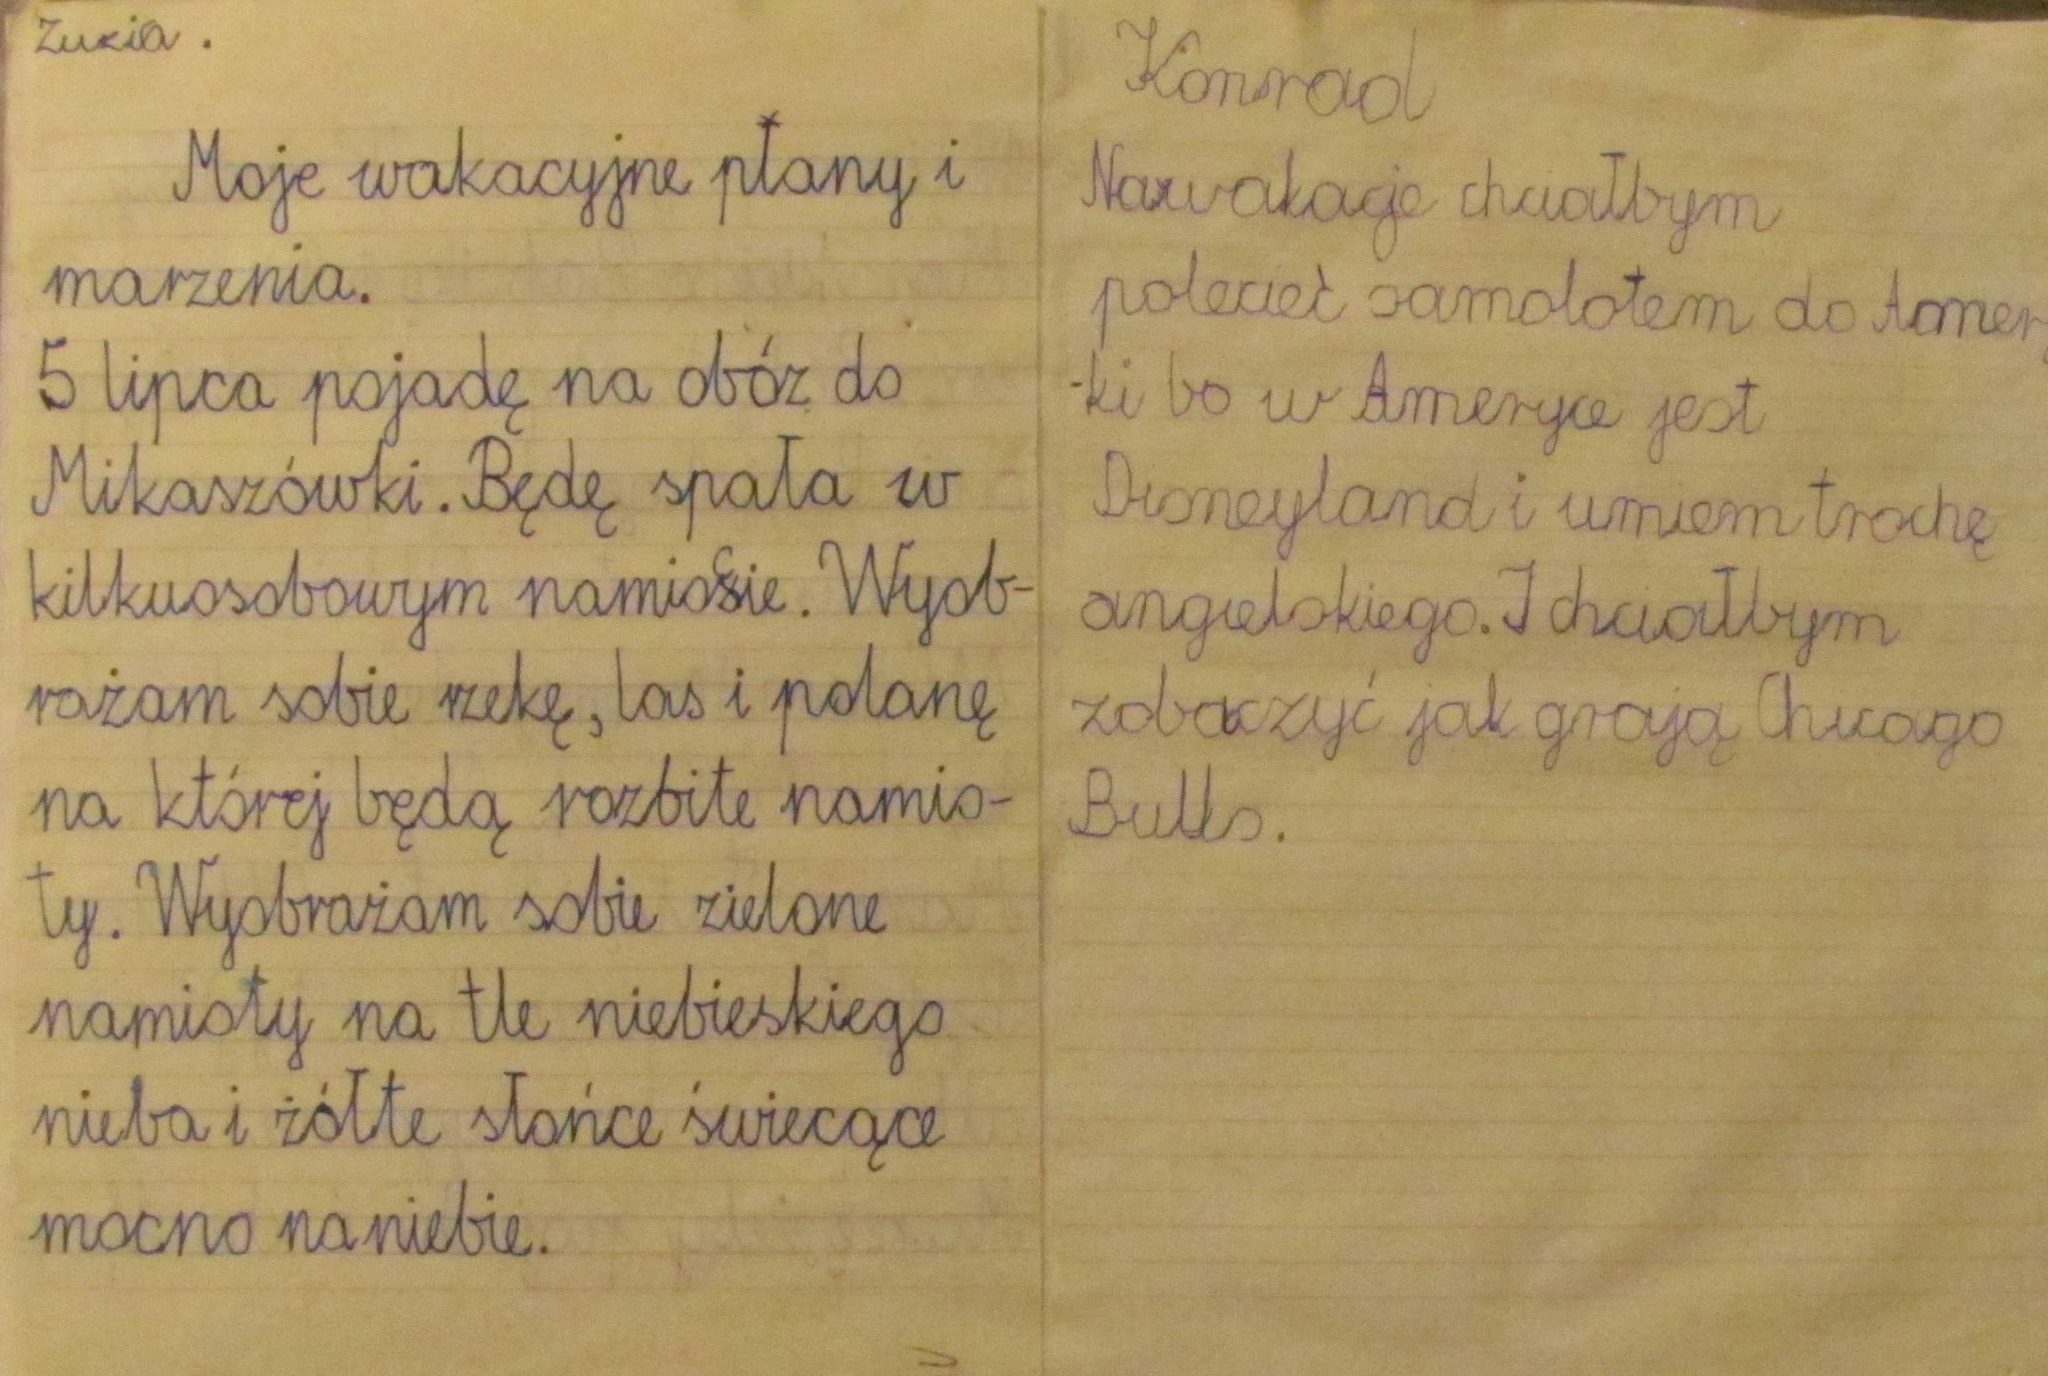 Zuzia.
Moje wakacyjne płany i
marzenia.
5 lipca pojadę na obóz do
Mikaszówki. Będę spała w
kilkuosobowym namiocie. Wyob-
rażam sobie rzekę, las i polanę
na której będą rozbite namio-
ty. Wyobrażam sobie zielone
namioty na tle niebieskiego
nieba i żółte słońce świecące
mocno na niebie.
Konrad
Na wakacje chciałbym
polecieć samolotem do Amery
-ki bo w Ameryce jest
Disneyland i umiem trochę
angielskiego. I chciałbym
zobaczyć jak grają Chicago
Bulls.